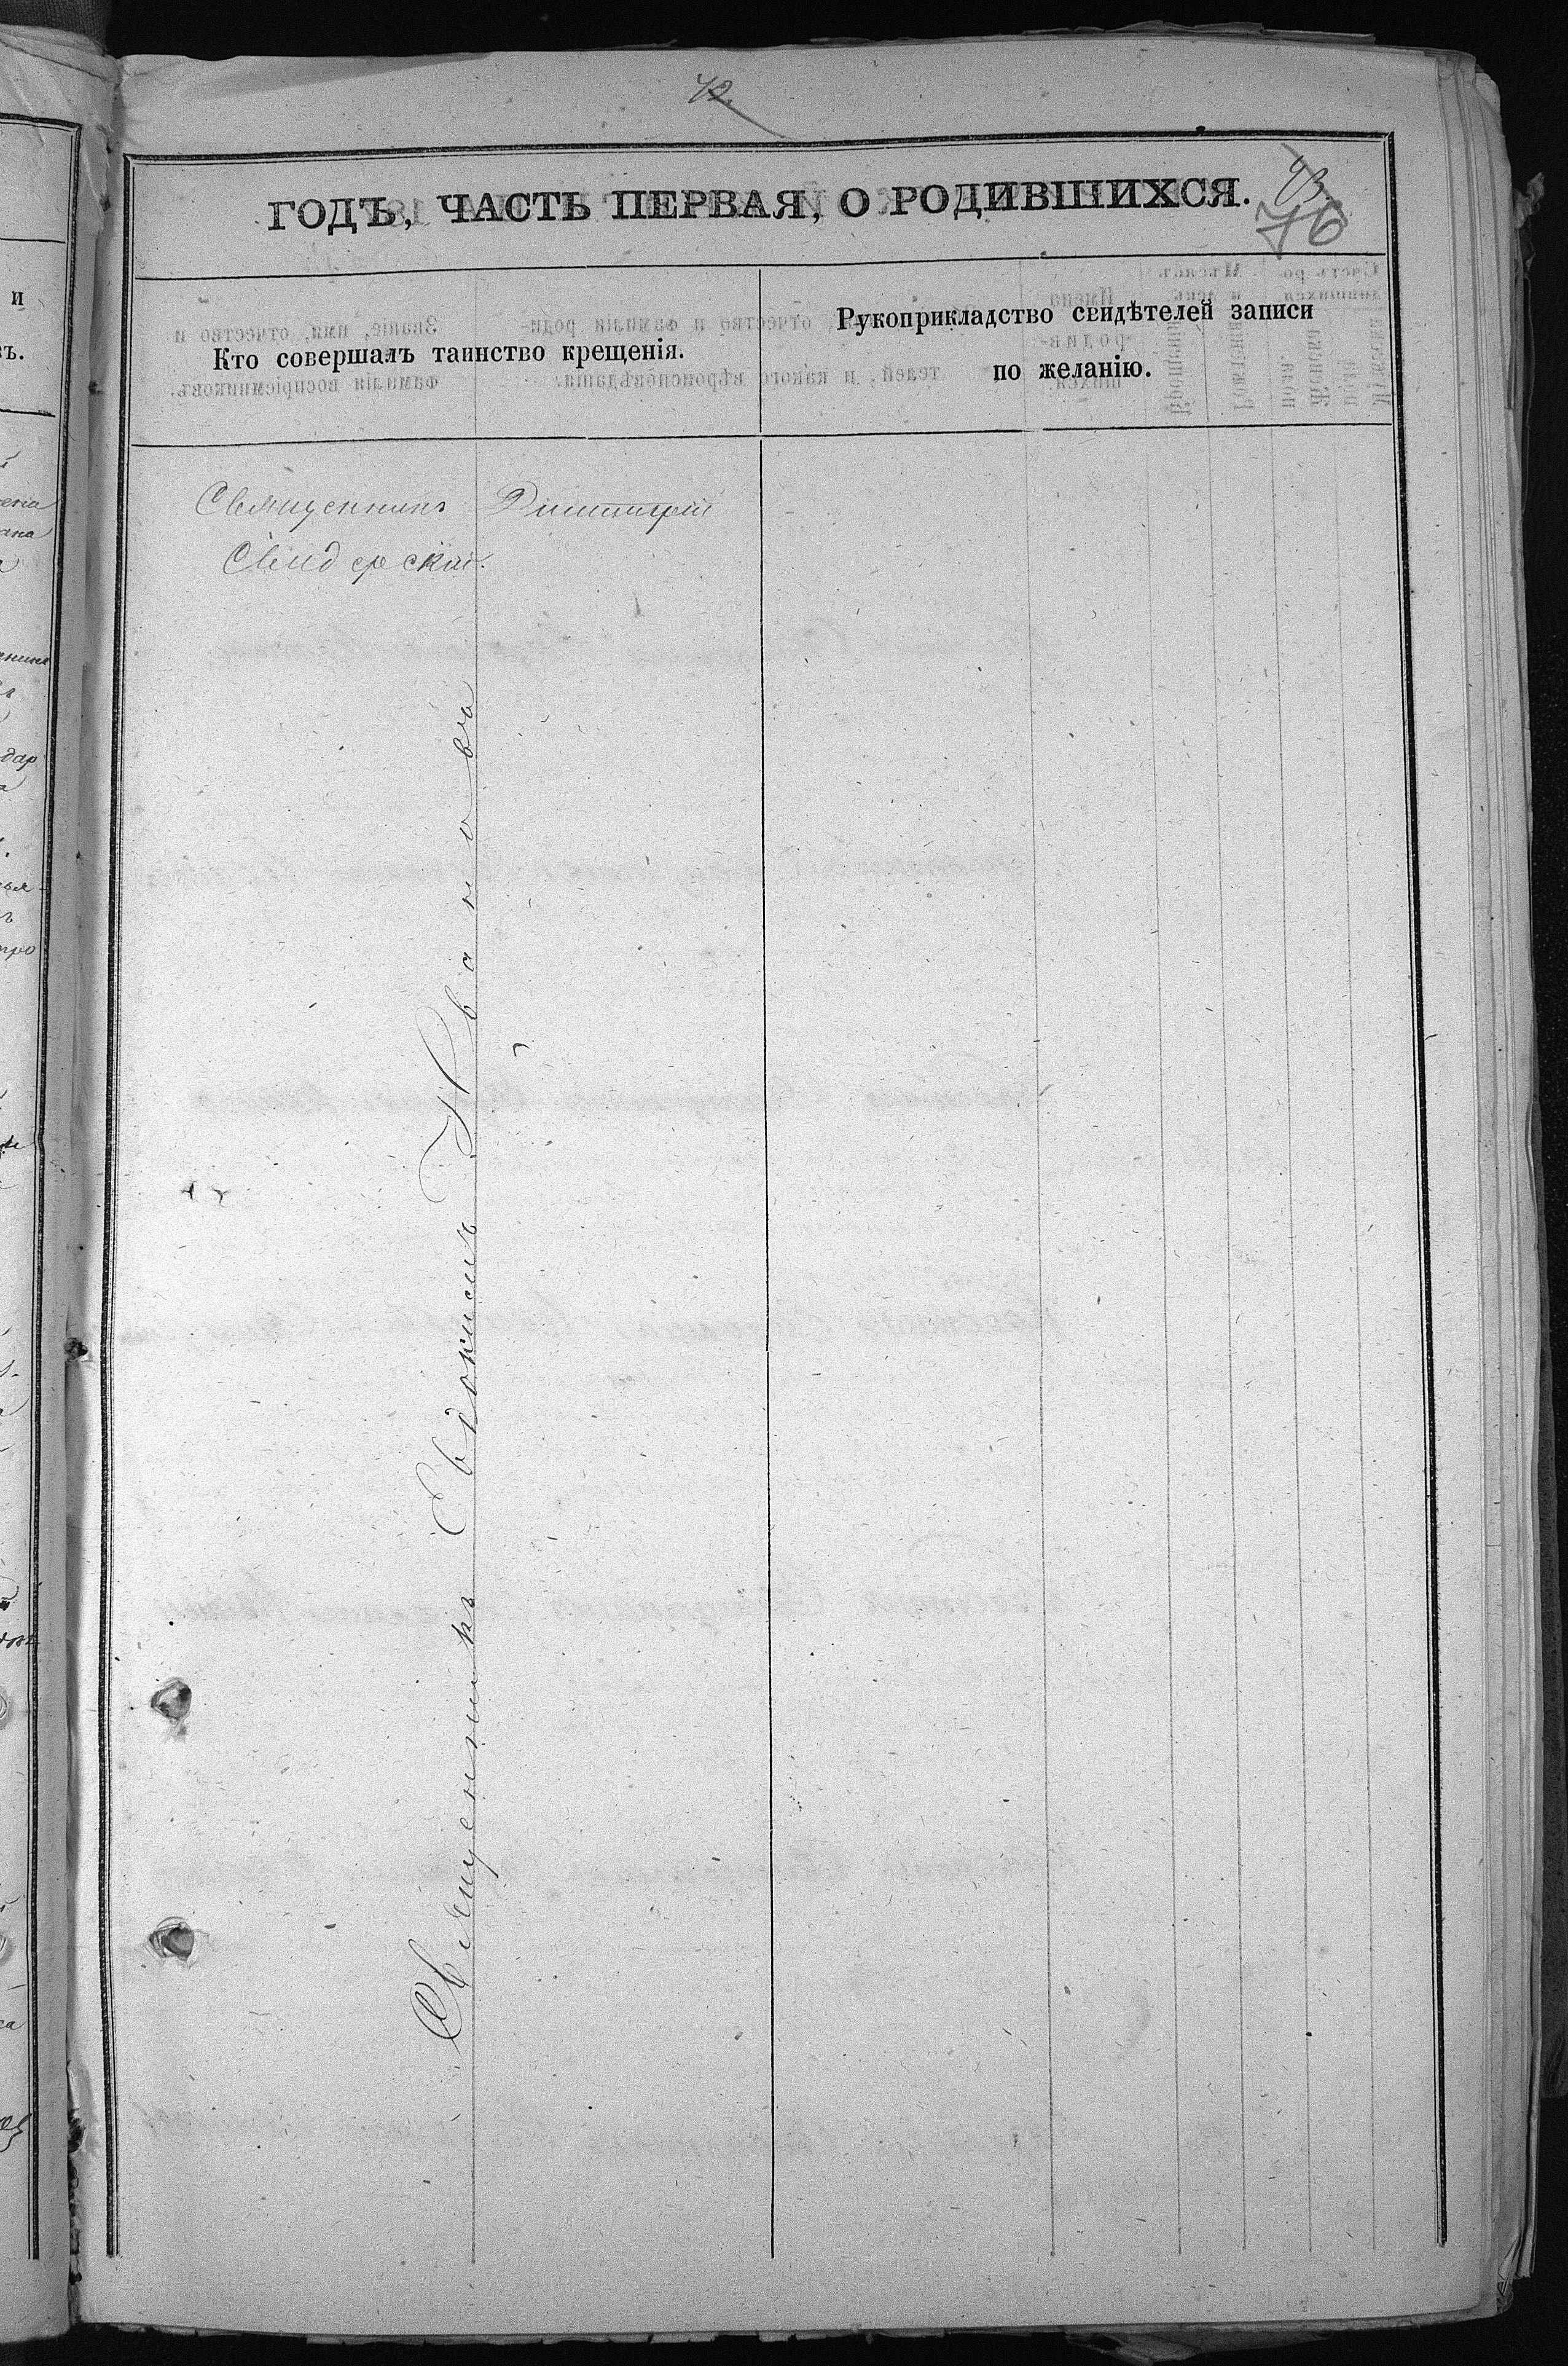 42.
ГОДЪ, ЧАСТЬ ПЕРВАЯ, О РОДИВШИХСЯ.
43.
76
Кто совершалъ таинство крещенія.
Рукоприкладство свидѣтелей записи
по желанію.
Священникъ Димитрій
Свидерскій.
Священникъ Евдокимъ Ивановъ
и
въ.